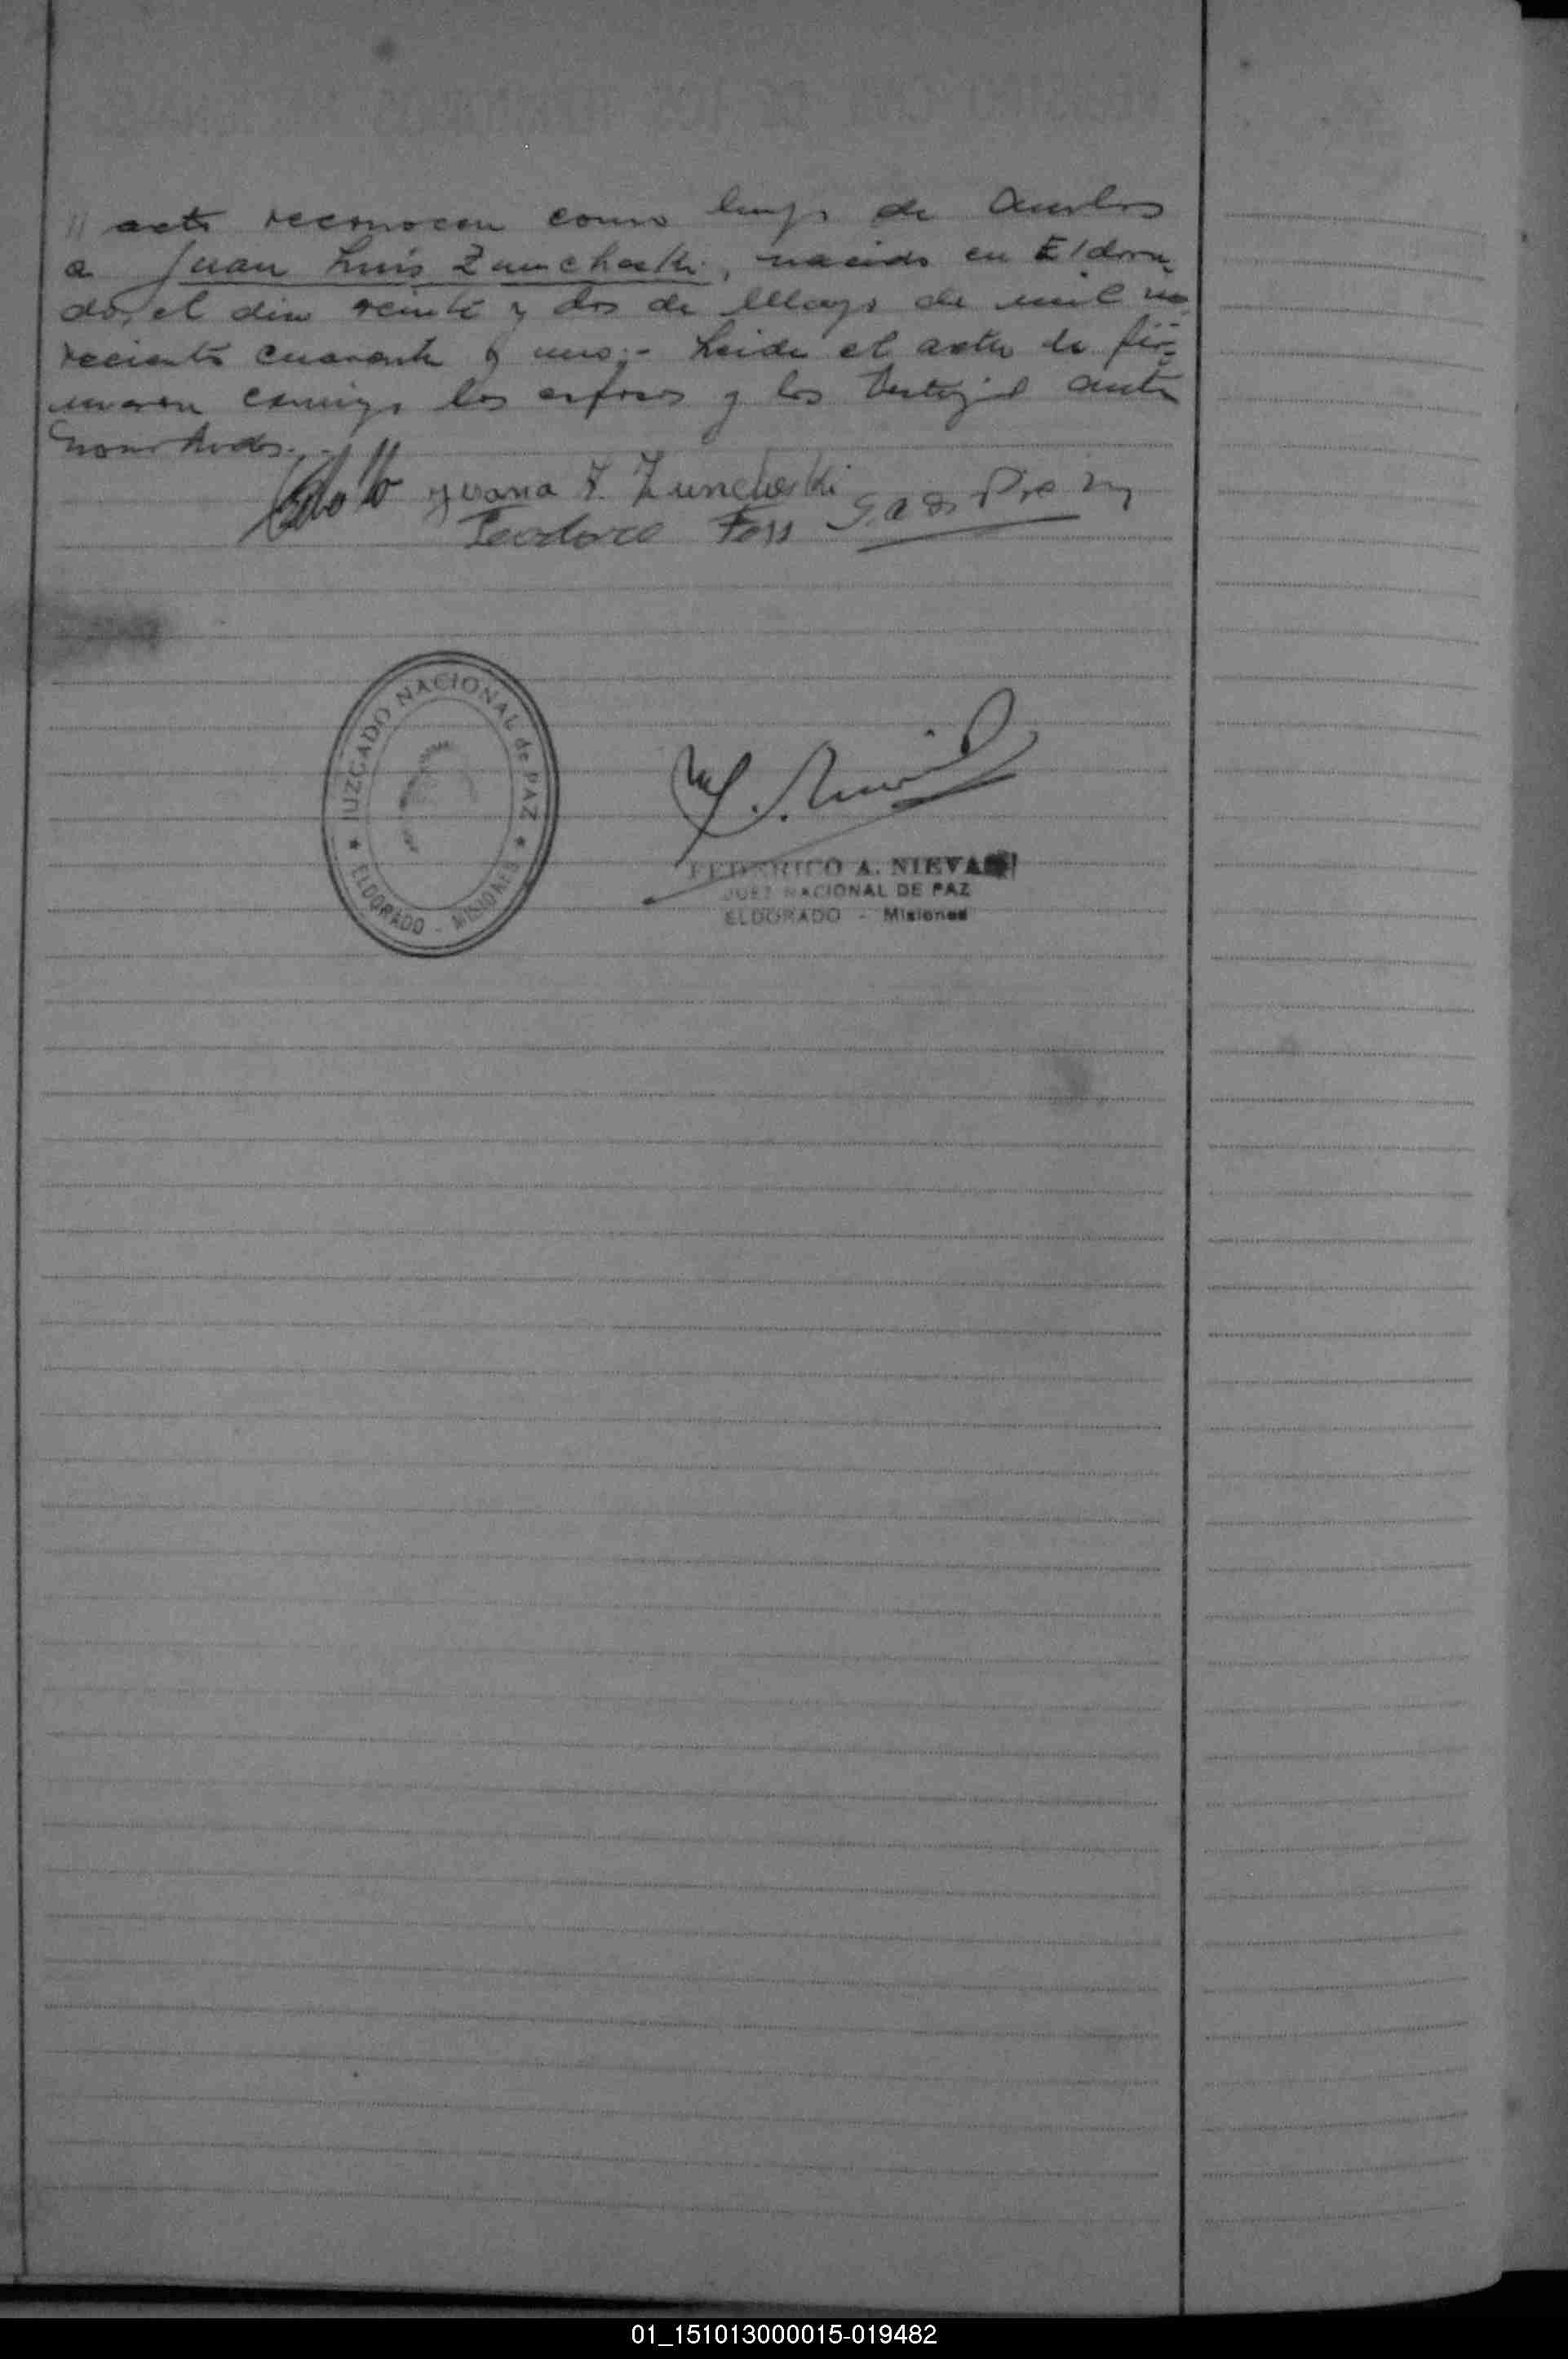 // acto reconocen como hijo de ambos
a Juan Luis Zuncheski, nacido en Eldora
do, el dia veinte y dos de Mayo de mil no
veciento cuarenta y uno.- Leida el acta la fir=
maron conmigo los esposos y los testigos ante
nombrados.-
Juana F. Zuncheski
Teodoro Foss
JUZGADO NACIONAL de PAZ
★ ELDORADO - MISIONES ★
FEDERICO A. NIEVAS
JUEZ NACIONAL DE PAZ
ELDORADO - Misiones
01_151013000015-019482